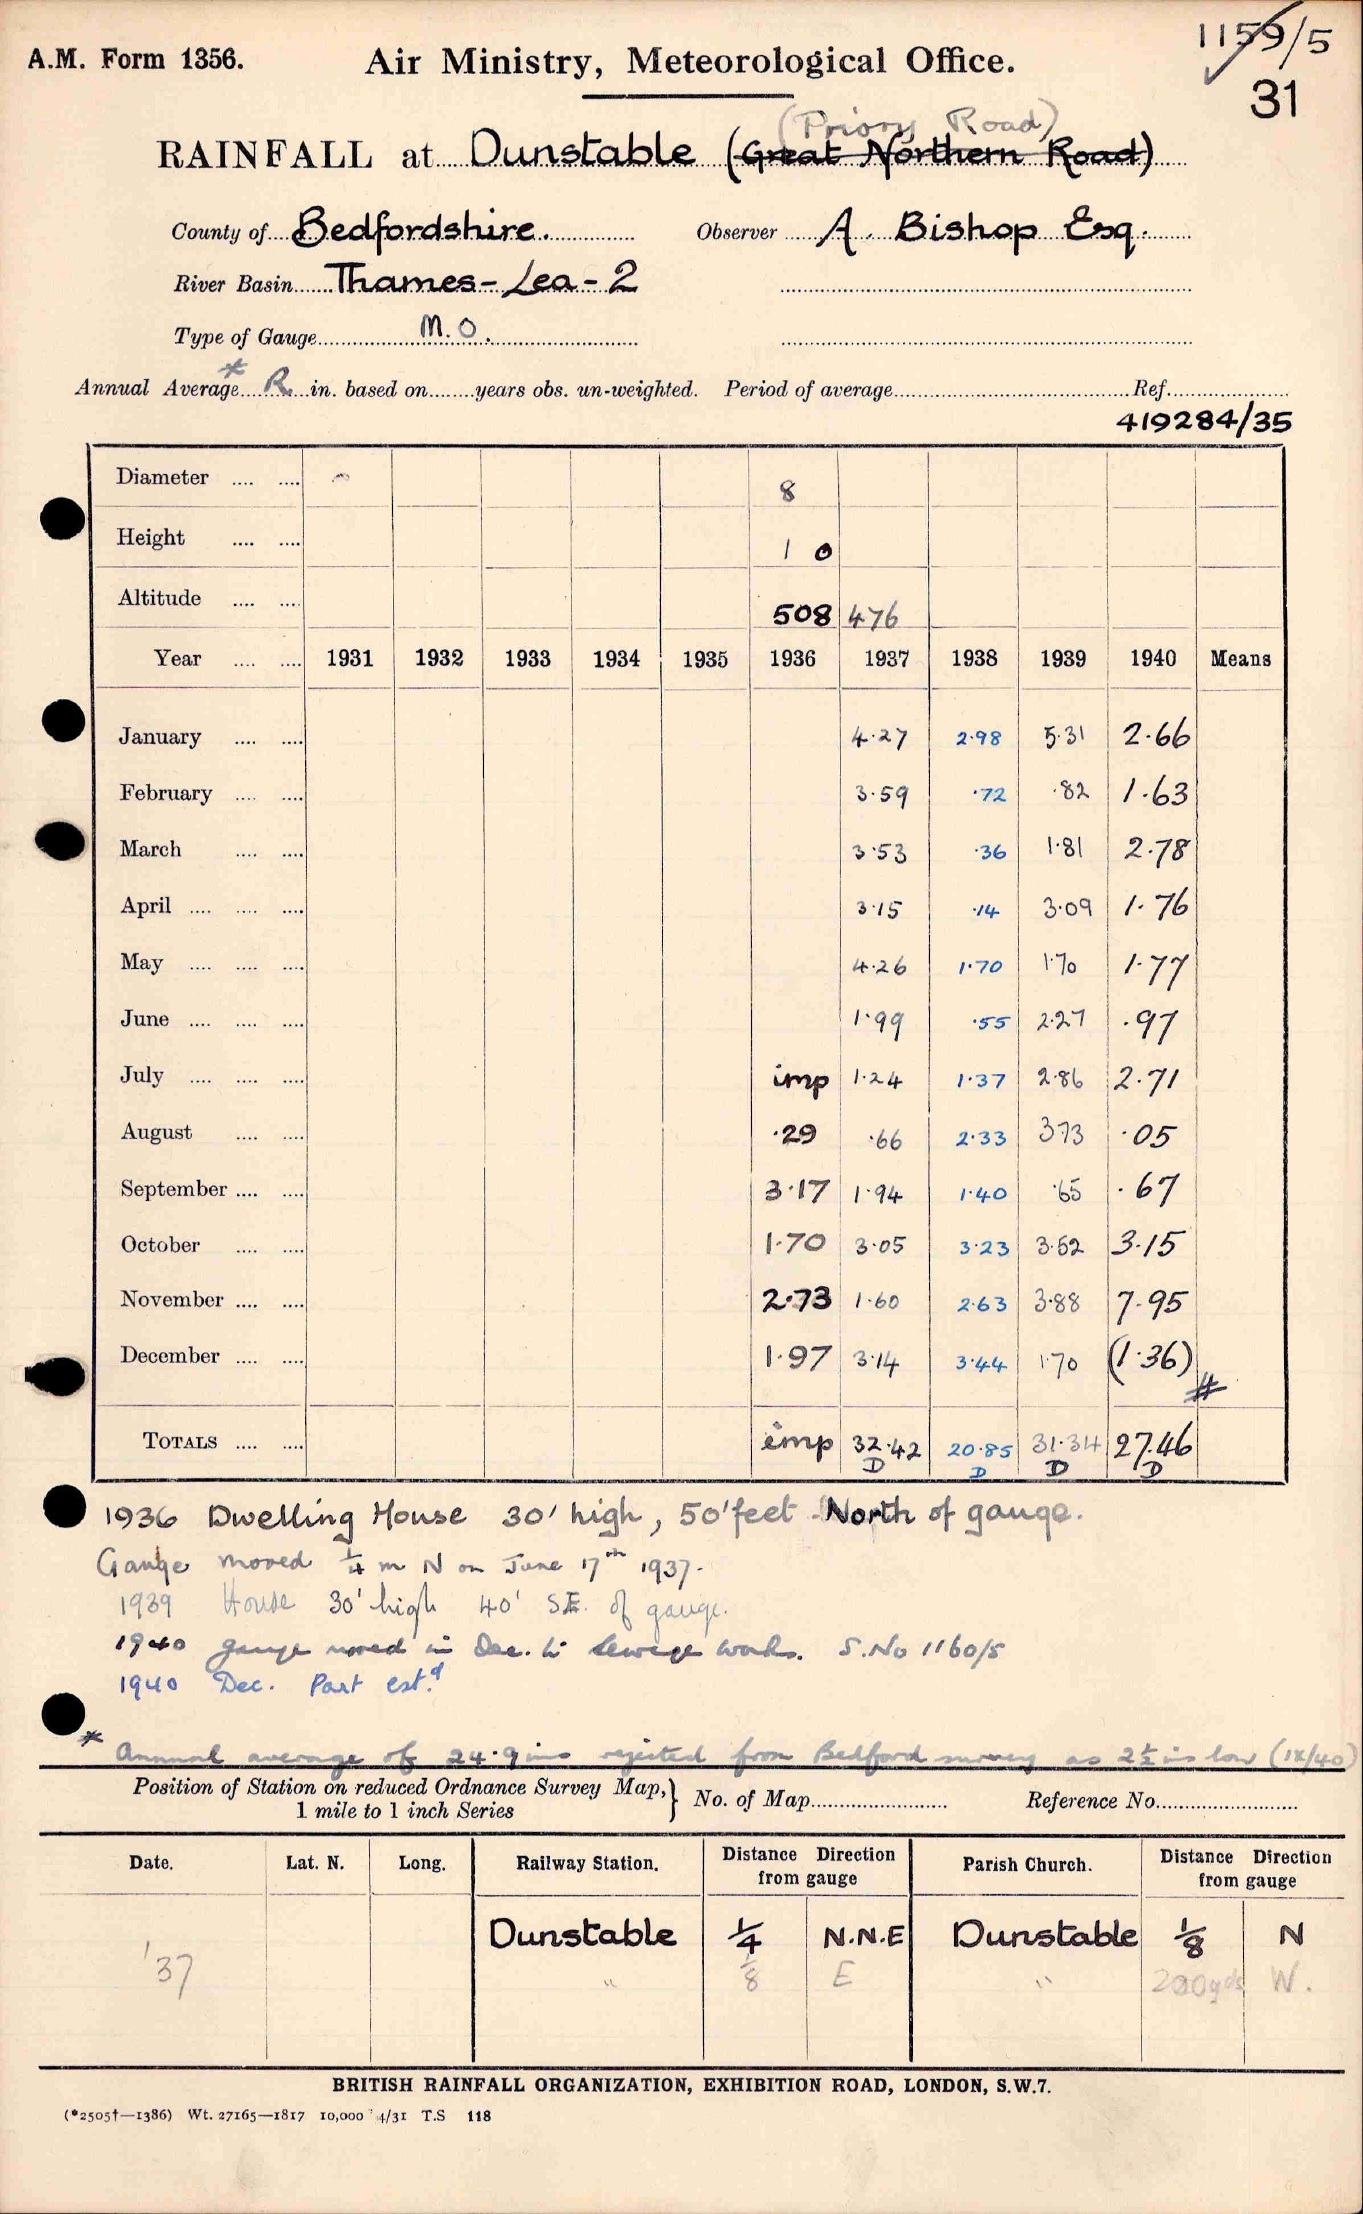 1159/5
A.M. Form 1356. Air Ministry, Meteorological Office.
31
(Priory Road)
RAINFALL at Dunstable (Great Northern Road)
County of Bedfordshire. Observer A. Bishop Esq.
River Basin Thames - Lea - 2
Type of Gauge M.O.
Annual Average * R in. based on years obs. un-weighted. Period of average Ref.
419284/35
Diameter 8
Height 1 0
Altitude 508 476
Year 1931 1932 1933 1934 1935 1936 1937 1938 1939 1940 Means
January 4.27 2.98 5.31 2.66
February 3.59 .72 .82 1.63
March 3.53 .36 1.81 2.78
April 3.15 .14 3.09 1.76
May 4.26 1.70 1.70 1.77
June 1.99 .55 2.27 .97
July imp 1.24 1.37 2.86 2.71
August .29 .66 2.33 3.73 .05
September 3.17 1.94 1.40 .65 .67
October 1.70 3.05 3.23 3.52 3.15
November 2.73 1.60 2.63 3.88 7.95
December 1.97 3.14 3.44 1.70 (1.36) #
TOTALS imp 32.42 20.85 31.34 27.46
D D D D
1936 Dwelling House 30' high, 50' feet North of gauge.
Gauge moved 1/4 m N on June 17th 1937.
1939 House 30' high 40' SE. of gauge.
1940 gauge moved in Dec. to Sewage works. S.No 1160/5
1940 Dec. Part estd.
* Annual average of 24.9 ins rejected from Bedford survey as 2½ ins low (IX/40)
Position of Station on reduced Ordnance Survey Map, } No. of Map Reference No.
1 mile to 1 inch Series
Date. Lat. N. Long. Railway Station. Distance Direction from gauge Parish Church. Distance Direction from gauge
Dunstable 1/4 N.N.E Dunstable 1/8 N
'37 " 1/8 E " 200yds W.
BRITISH RAINFALL ORGANIZATION, EXHIBITION ROAD, LONDON, S.W.7.
(*2505†—1386) Wt. 27165—1817 10,000 4/31 T.S 118